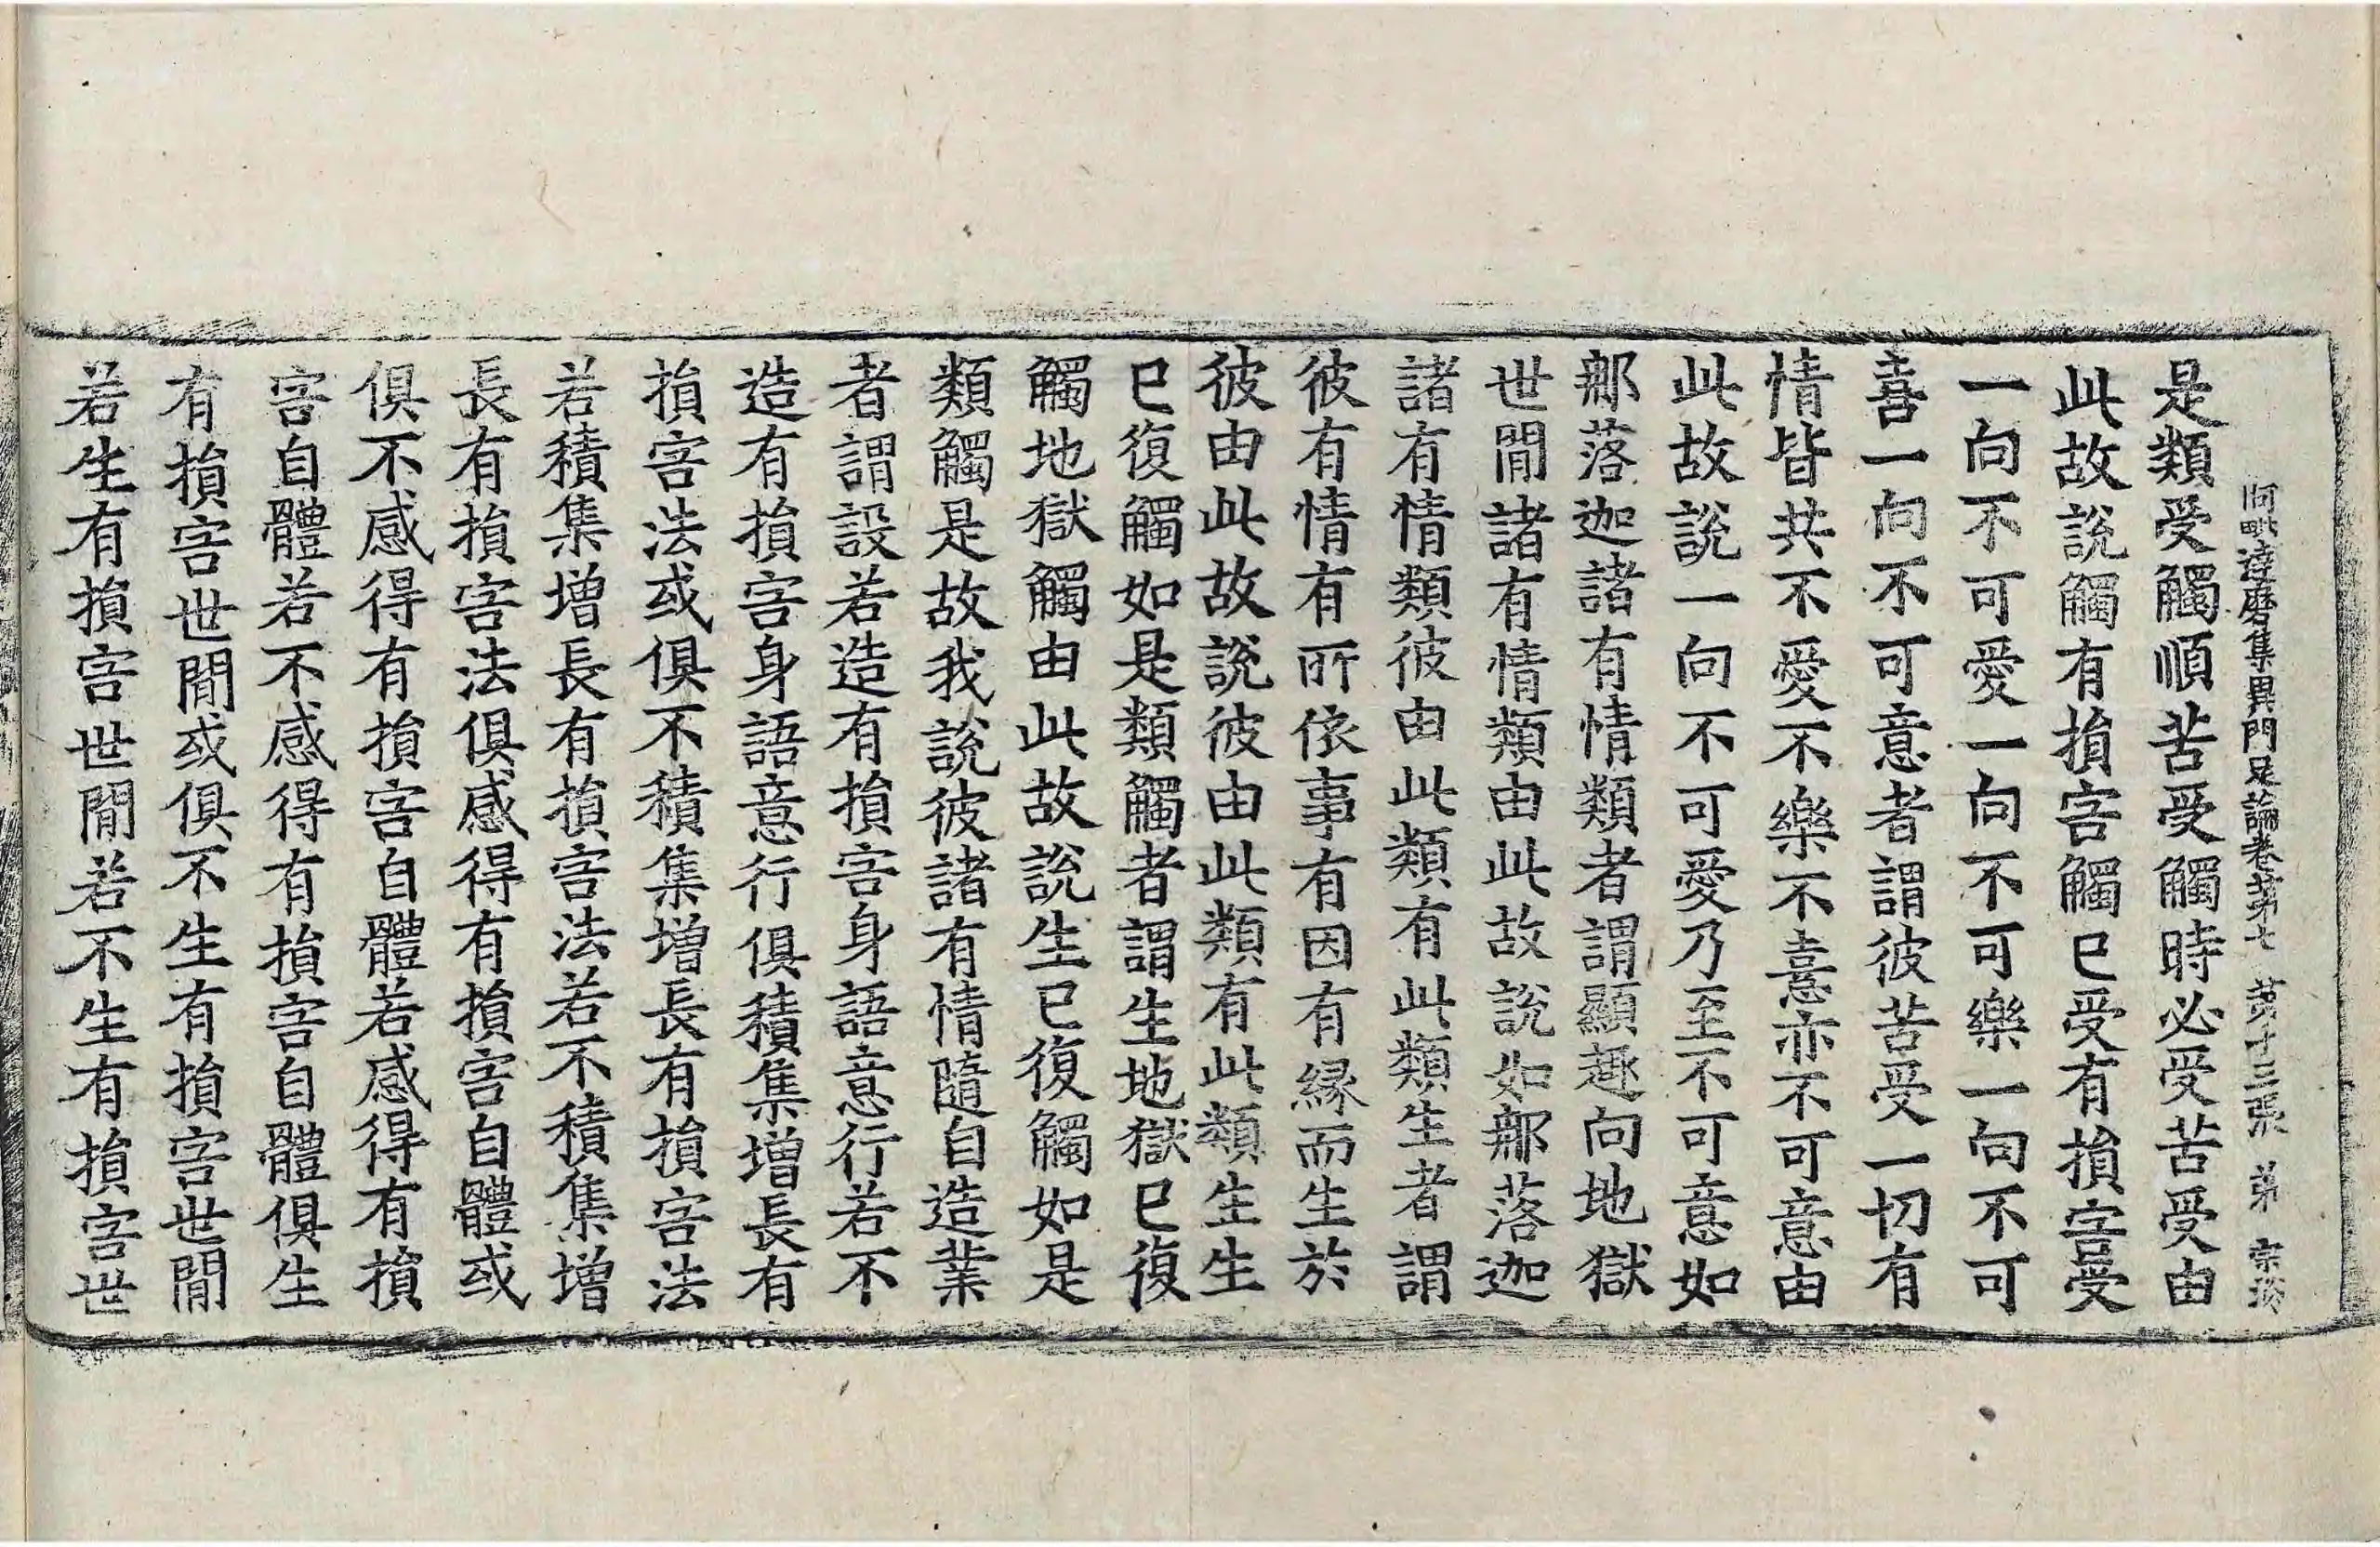 阿毗達磨集異門足論卷第七 第十三張 弟
是類受觸順苦受觸時必受苦受由
此故說觸有損害觸已受有損害受
一向不可愛一向不可樂一向不可
喜一向不可意者謂彼苦受一切有
情皆共不愛不樂不憙亦不可意由
此故說一向不可愛乃至不可意如
那落迦諸有情類者謂顯趣向地獄
世間諸有情類由此故說如那落迦
諸有情類彼由此類有此類生者謂
彼有情有所依事有因有緣而生於
彼由此故說彼由此類有此類生生
已復觸如是類觸者謂生地獄已復
觸地獄觸由此故說生已復觸如是
類觸是故我說彼諸有情隨自造業
者謂設若造有損害身語意行若不
造有損害身語意行俱積集增長有
損害法或俱不積集增長有損害法
若積集增長有損害法若不積集增
長有損害法俱感得有損害自體或
俱不感得有損害自體若感得有損
害自體若不感得有損害自體俱生
有損害世間或俱不生有損害世間
若生有損害世間若不生有損害世